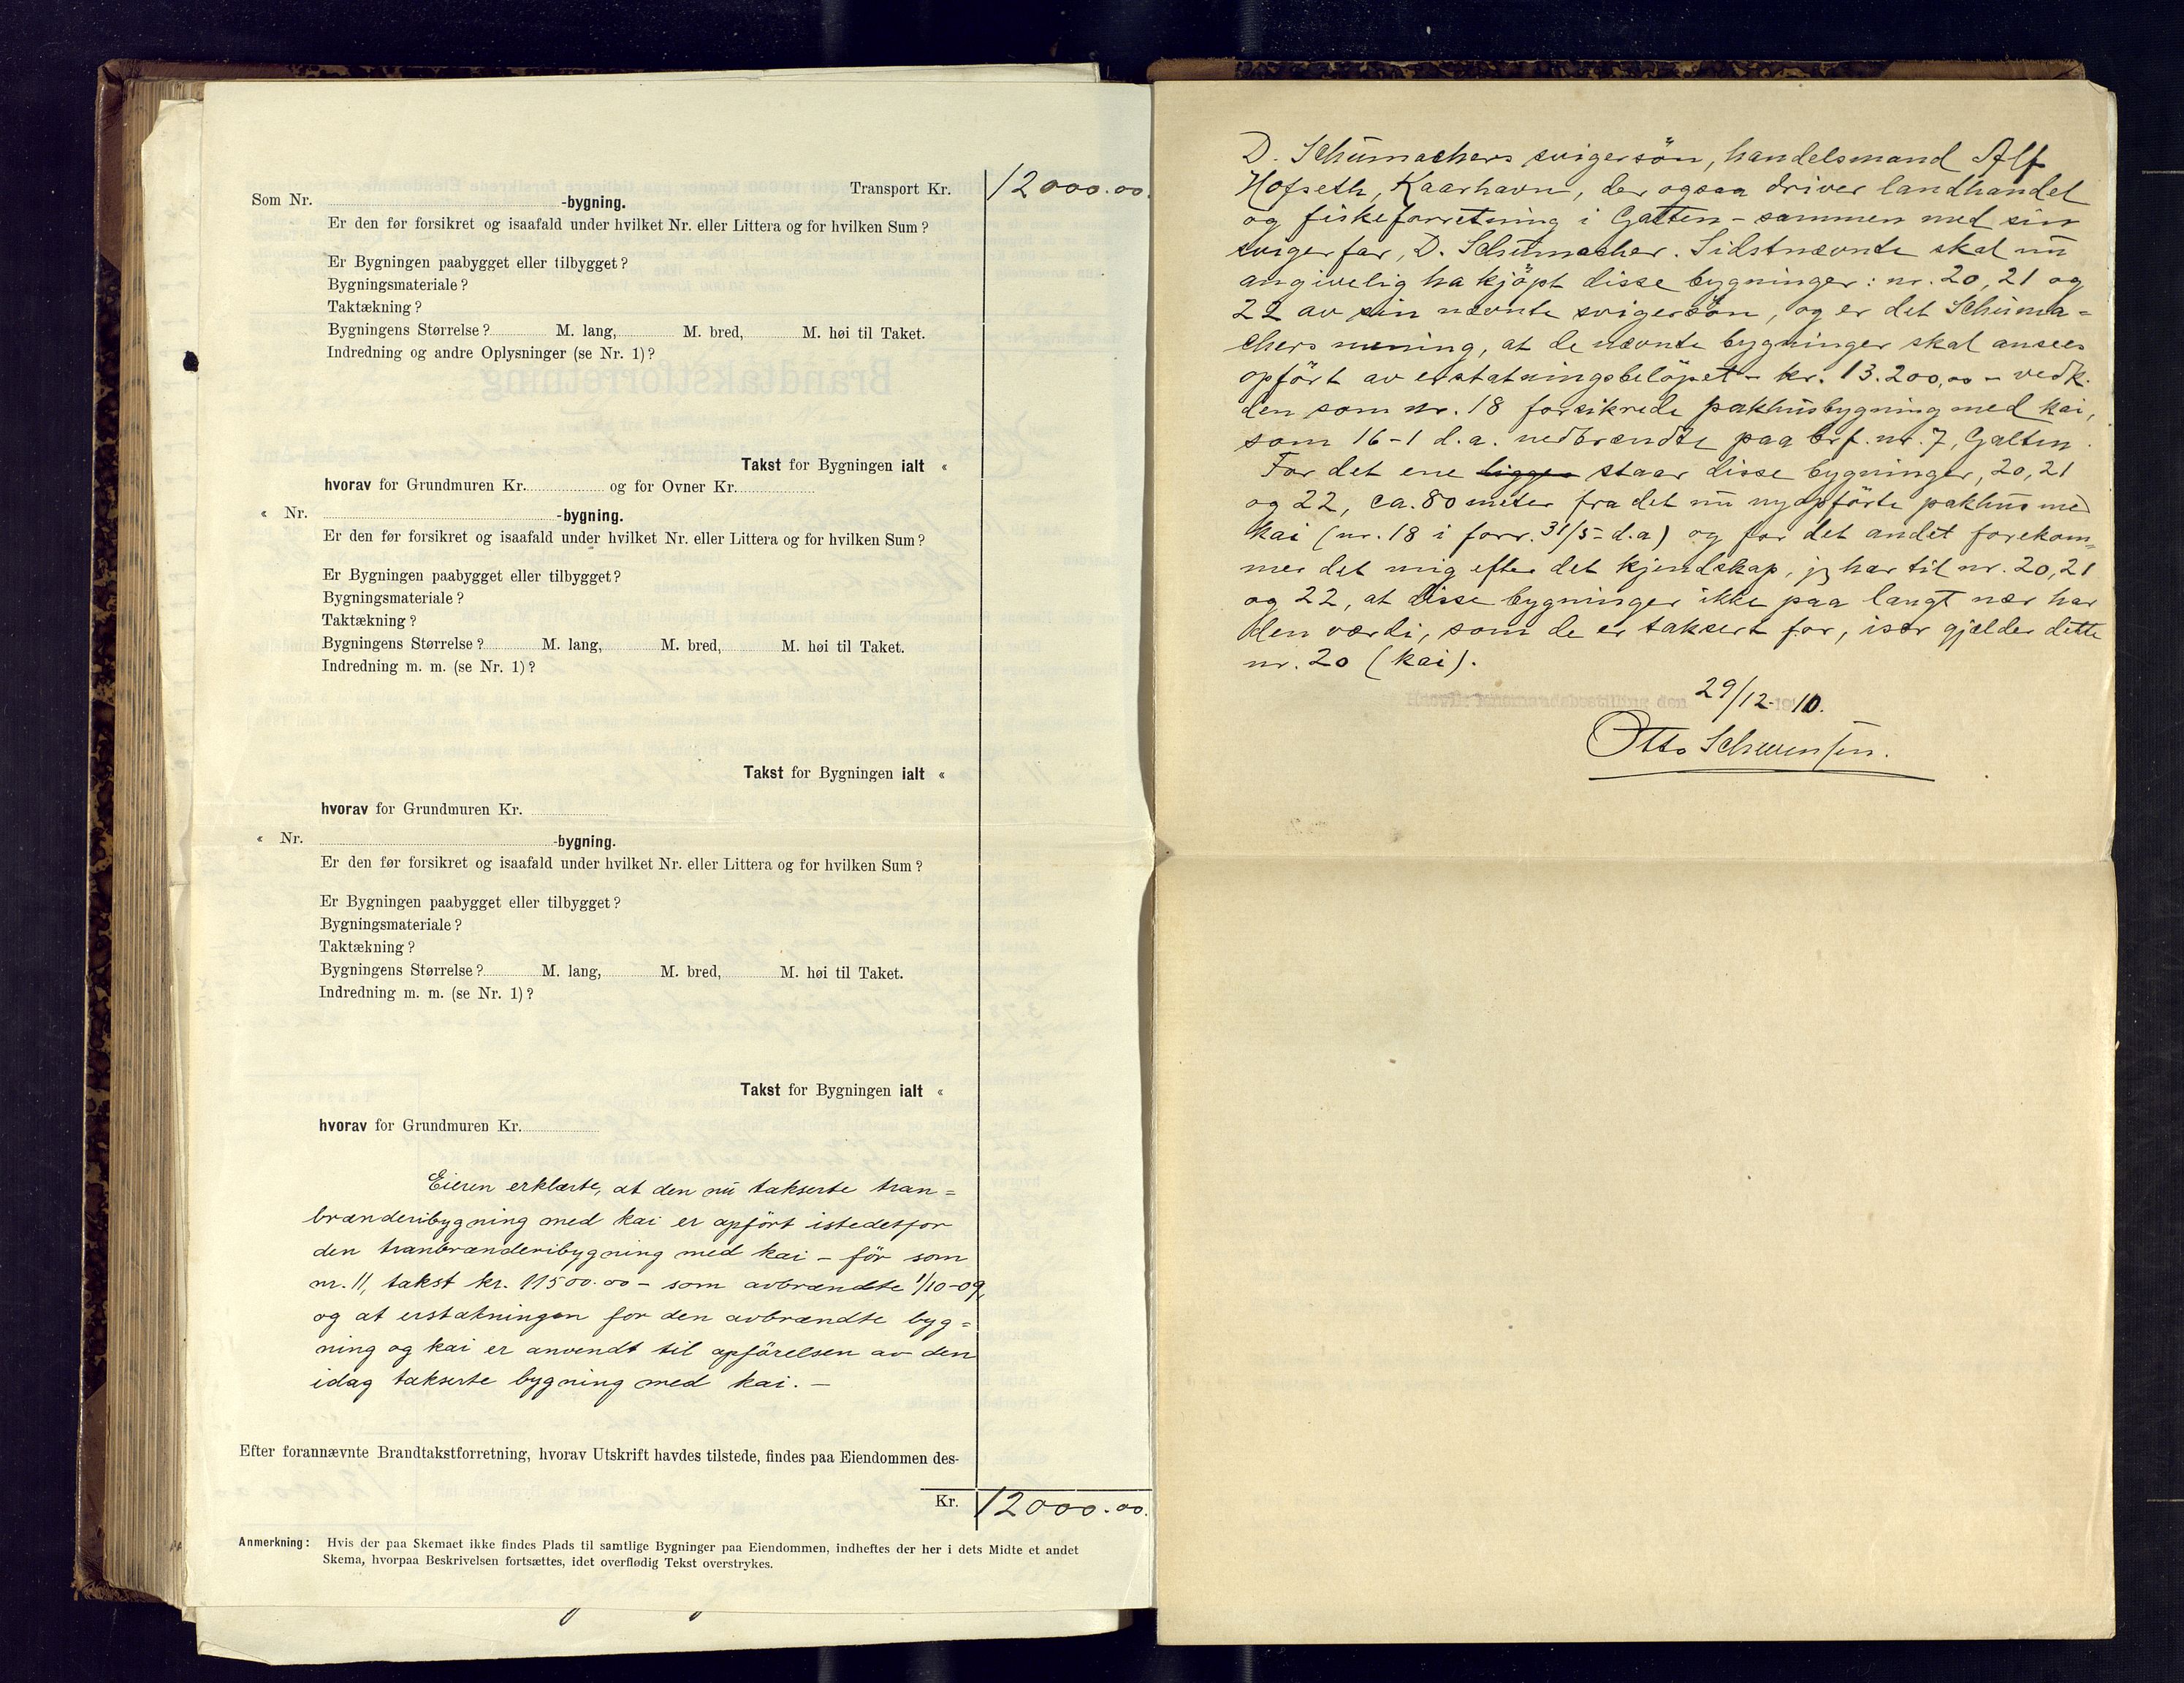 Transport Kr. 12000.00.
Som Nr. -bygning.
Er den før forsikret og isaafald under hvilket Nr. eller Littera og for hvilken Sum?
Er Bygningen paabygget eller tilbygget?
Bygningsmateriale?
Taktækning?
Bygningens Størrelse? M. lang, M. bred, M. høi til Taket.
Indredning og andre Oplysninger (se Nr. 1)?
Takst for Bygningen ialt «
hvorav for Grundmuren Kr. og for Ovner Kr.
« Nr. -bygning.
Er den før forsikret og isaafald under hvilket Nr. eller Littera og for hvilken Sum?
Er Bygningen paabygget eller tilbygget?
Bygningsmateriale?
Taktækning?
Bygningens Størrelse? M. lang, M. bred, M. høi til Taket.
Indredning m. m. (se Nr. 1)?
Takst for Bygningen ialt «
hvorav for Grundmuren Kr.
« Nr. -bygning.
Er den før forsikret og isaafald under hvilket Nr. eller Littera og for hvilken Sum?
Er Bygningen paabygget eller tilbygget?
Bygningsmateriale?
Taktækning?
Bygningens Størrelse? M. lang, M. bred, M. høi til Taket.
Indredning m. m. (se Nr. 1)?
Takst for Bygningen ialt «
hvorav for Grundmuren Kr.
Eieren erklærte, at den nu takserte tran=
brænderibygning med kai er opført istedetfor
den tranbrænderibygning med kai – før som
nr. 11, takst kr. 11500.00 – som avbrændte 1/10-09,
og at erstatningen for den avbrændte byg=
ning og kai er anvendt til opførelsen av den
idag takserte bygning med kai. –
Efter forannævnte Brandtakstforretning, hvorav Utskrift havdes tilstede, findes paa Eiendommen des-
Kr. 12000.00.
Anmerkning: Hvis der paa Skemaet ikke findes Plads til samtlige Bygninger paa Eiendommen, indheftes der her i dets Midte et andet
Skema, hvorpaa Beskrivelsen fortsættes, idet overflødig Tekst overstrykes.
D. Schumachers svigersøn, handelsmand Alf
Hofseth, Kaarhavn, der ogsaa driver landhandel
og fiskeforretning i Galten – sammen med sin
svigerfar, D. Schumacher. Sidstnævnte skal nu
angivelig ha kjøpt disse bygninger: nr. 20, 21 og
22 av sin nævnte svigersøn, og er det Schuma=
chers mening, at de nævnte bygninger skal ansees
opført av erstatningsbeløpet – kr. 13.200,00 – vedk.
den som nr. 18 forsikrede pakhusbygning med kai,
som 16-1 d.a. nedbrændte paa brf. nr. 7, Galten.
For det ene ligger staar disse bygninger, 20, 21
og 22, ca. 80 meter fra det nu nyopførte pakhus med
kai (nr. 18 i forr. 31/5 - d.a) og for det andet forekom=
mer det mig efter det kjendskap, jeg har til nr. 20, 21
og 22, at disse bygninger ikke paa langt nær har
den værdi, som de er taksert for, især gjælder dette
nr. 20 (kai).
Hasvik lensmandsbestilling den 29/12-1910.
Otto Schwensen.